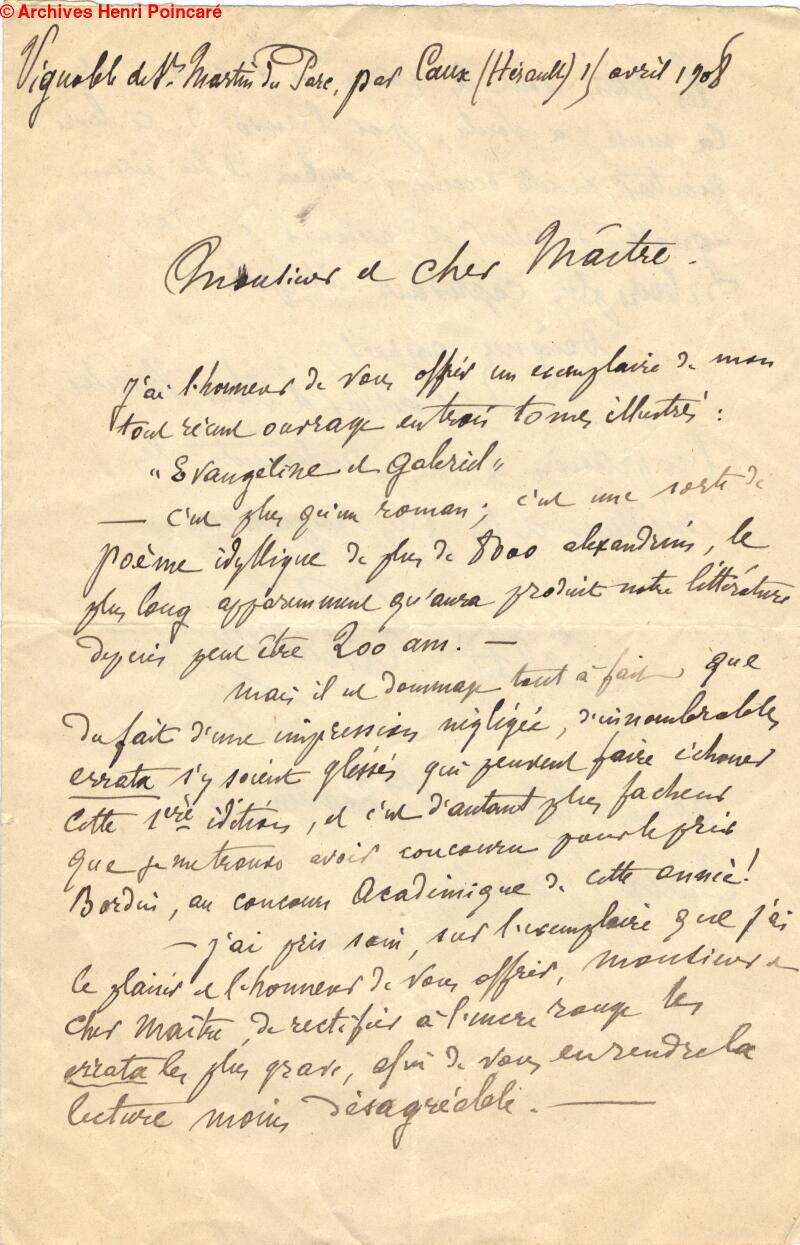 © Archives Henri Poincaré
Vignoble de St Martin du Parc, par Caux (Hérault) 15 avril 1908
Monsieur et cher Maître.
J'ai l'honneur de vous offrir un exemplaire de mon
tout récent ouvrage en trois tomes illustrés :
"Evangéline et Gabriel"
— c'est plus qu'un roman ; c'est une sorte de
poème idyllique de plus de 8000 alexandrins, le
plus long apparemment qu'aura produit notre littérature
depuis peut être 200 ans. —
mais il est dommage tout à fait que
du fait d'une impression négligée, d'innombrables
errata s'y soient glissés qui peuvent faire échouer
cette 1ère édition, et c'est d'autant plus facheux
que je me trouve avoir concouru pour le prix
Bordin, au concours Académique de cette année !
— j'ai pris soin, sur l'exemplaire que j'ai
le plaisir et l'honneur de vous offrir, monsieur et
cher Maître, de rectifier à l'encre rouge les
errata les plus grave, afin de vous en rendre la
lecture moins désagréable. —